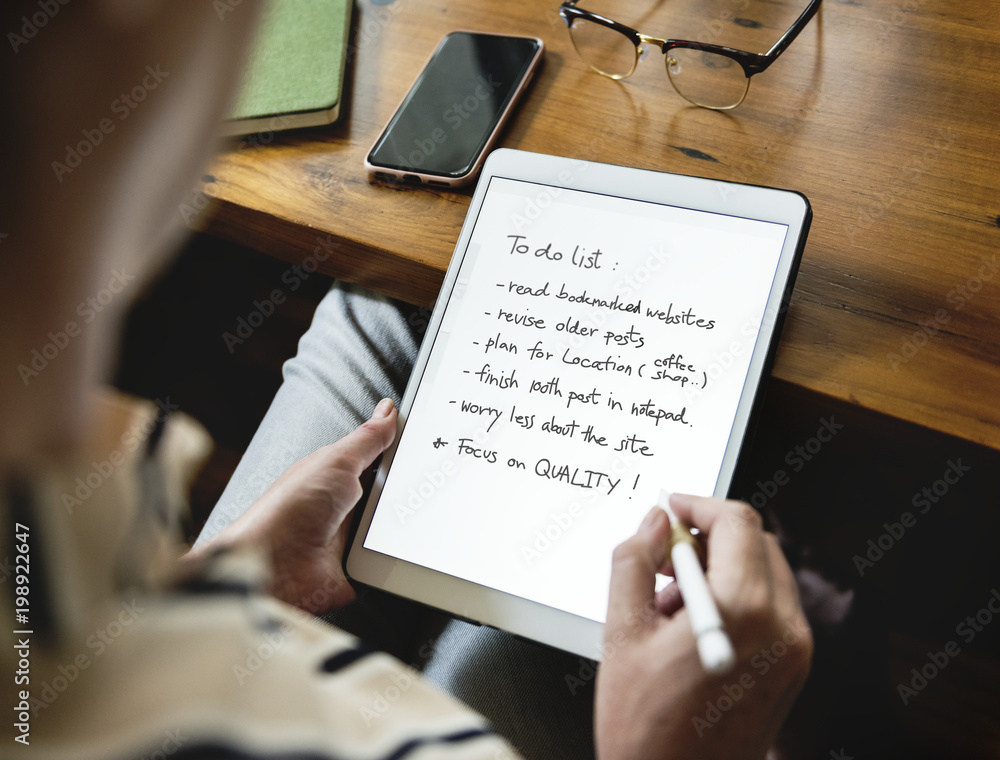 To do list :
- read bookmarked websites
- revise older posts
- plan for Location ( coffee shop.. )
- finish 100th post in notepad.
- worry less about the site
* Focus on QUALITY !
Adobe Stock | #198922647